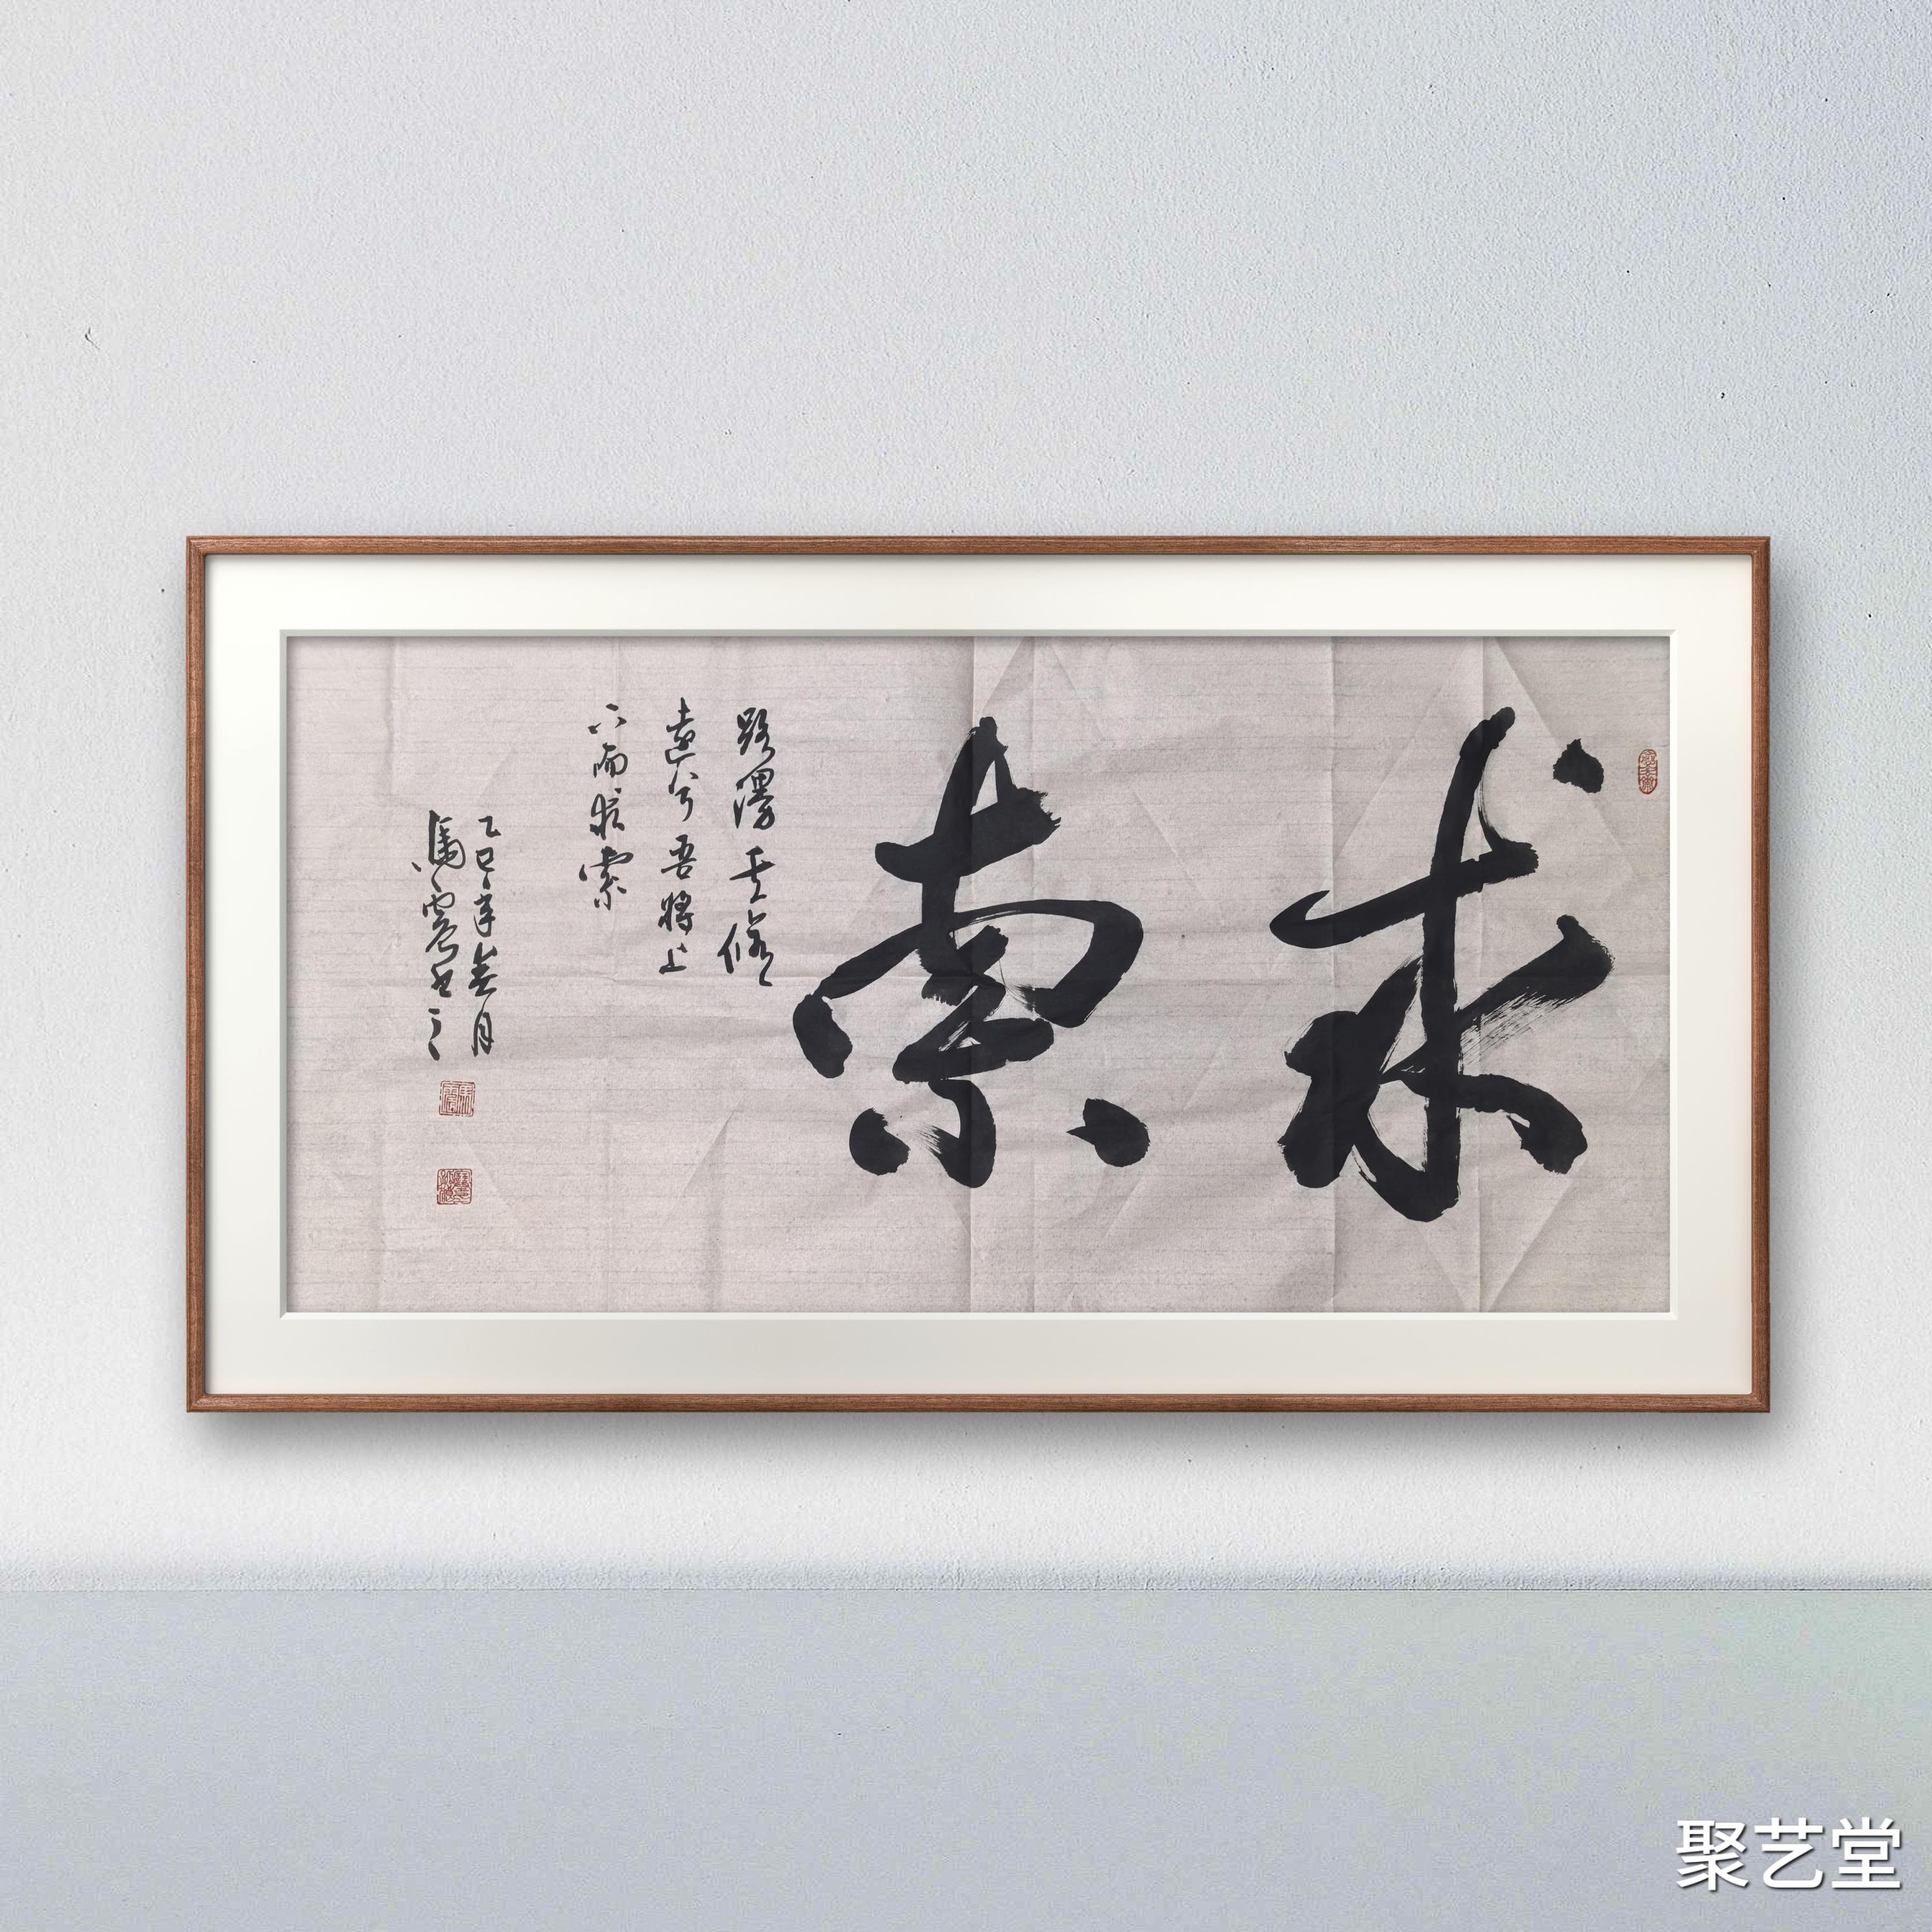 求索
路漫其修
远兮吾将上
下而求索
乙巳年春月
马云书之
聚艺堂